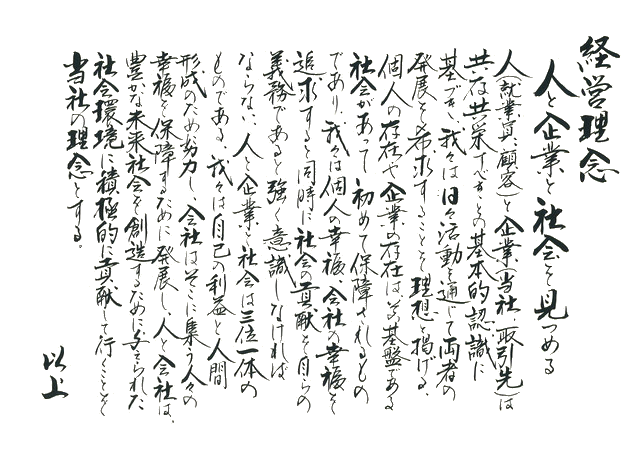 経営理念
人と企業と社会を見つめる
人(就業員、顧客)と企業(当社、取引先)は
共存共栄すべきとの基本的認識に
基づき、我々は日々活動を通じて両者の
発展を希求することを理想と掲げる。
個人の存在や企業の存在はその基盤である
社会があって初めて保障されるもの
であり、我々は個人の幸福、会社の幸福を
追求すると同時に社会の貢献を自らの
義務であると強く意識しなければ
ならない。人と企業、社会は三位一体の
ものである。我々は自己の利益と人間
形成のため努力し、会社はそこに集う人々の
幸福を保障するために発展し、人と会社は、
豊かな未来社会を創造するために与えられた
社会環境に積極的に貢献して行くことを
当社の理念とする。
以上